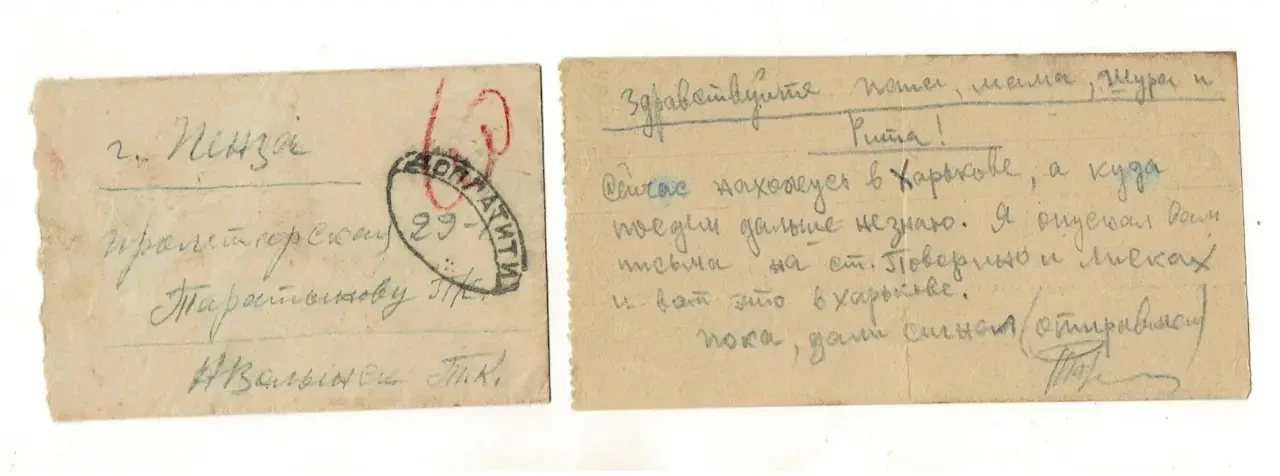 г. Пенза
пролетарская 29-
Таратынову Т.К.
НВолынск Т.К.
ДОПЛАТИТЬ
Здравствуйте папа, мама, Шура и
Рита!
Сейчас нахожусь в Харькове, а куда
поедим дальше незнаю. Я опускал Вам
письма на ст. Поворино и Лисках
и вот это в Харькове.
Пока, дали сигнал (отправился)